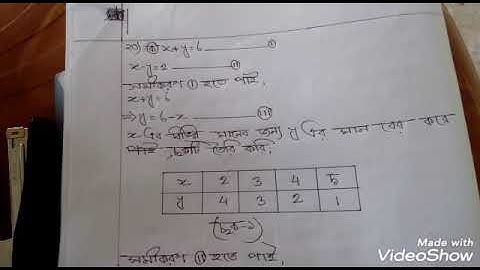 ২০) (ক) x+y=6 ——— (i)
x-y=2 ——— (ii)
সমীকরণ (i) হতে পাই,
x+y=6
⇒ y=6-x ——— (iii)
x এর বিভিন্ন মানের জন্য y এর মান বের করে
ছকটি তৈরি করি,
x 2 3 4 5
y 4 3 2 1
সমীকরণ (ii) হতে পাই,
Made with
VideoShow